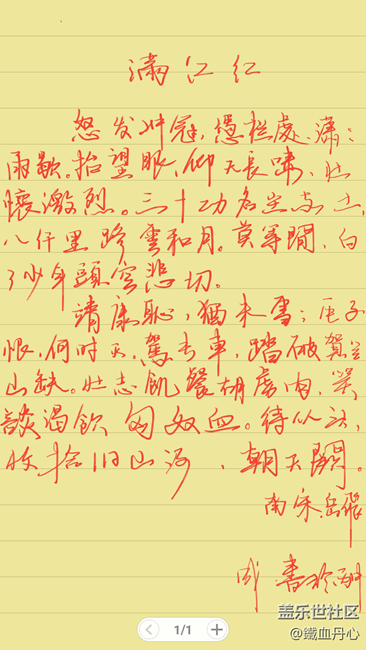 满江红
怒发冲冠，凭栏處，潇：
雨歇。抬望眼，仰天長嘯，壮
懷激烈。三十功名尘与土，
八仟里路雲和月。莫等閒，白
了少年頭空悲切。
靖康恥，猶未雪；臣子
恨，何时灭，駕长車，踏破賀兰
山缺。壮志飢餐胡虏肉，笑
談渴飲匈奴血。待从头，
收拾旧山河，朝天闕。
南宋岳飛
書于
1/1
盖乐世社区
@鐵血丹心